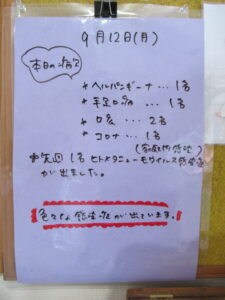 9月12日(月)
本日の病欠
*ヘルパンギーナ…1名
*手足口病…1名
*口炎…2名
*コロナ…1名
(家庭内感染)
※先週1名ヒトメタニューモウイルス感染症
が出ました。
色々な感染症が出ています。